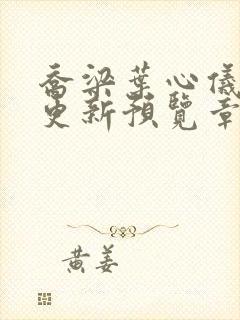 喬梁葉心儀
更新預覽章
黃姜